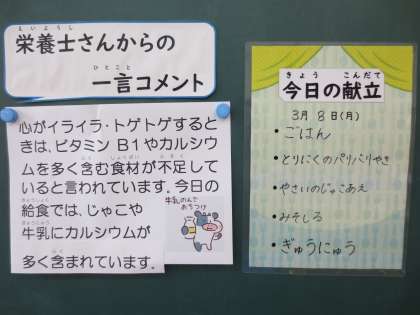 栄養士さんからの
一言コメント
心がイライラ・トゲトゲすると
きは、ビタミン B1やカルシウ
ムを多く含む食材が不足して
いると言われています。今日の
給食では、じゃこや
牛乳にカルシウムが
多く含まれています。
牛乳のんで
おちつけ
今日の献立
3月 8日(月)
・ごはん
・とりにくのパリパリやき
・やさいのじゃこあえ
・みそしる
・ぎゅうにゅう